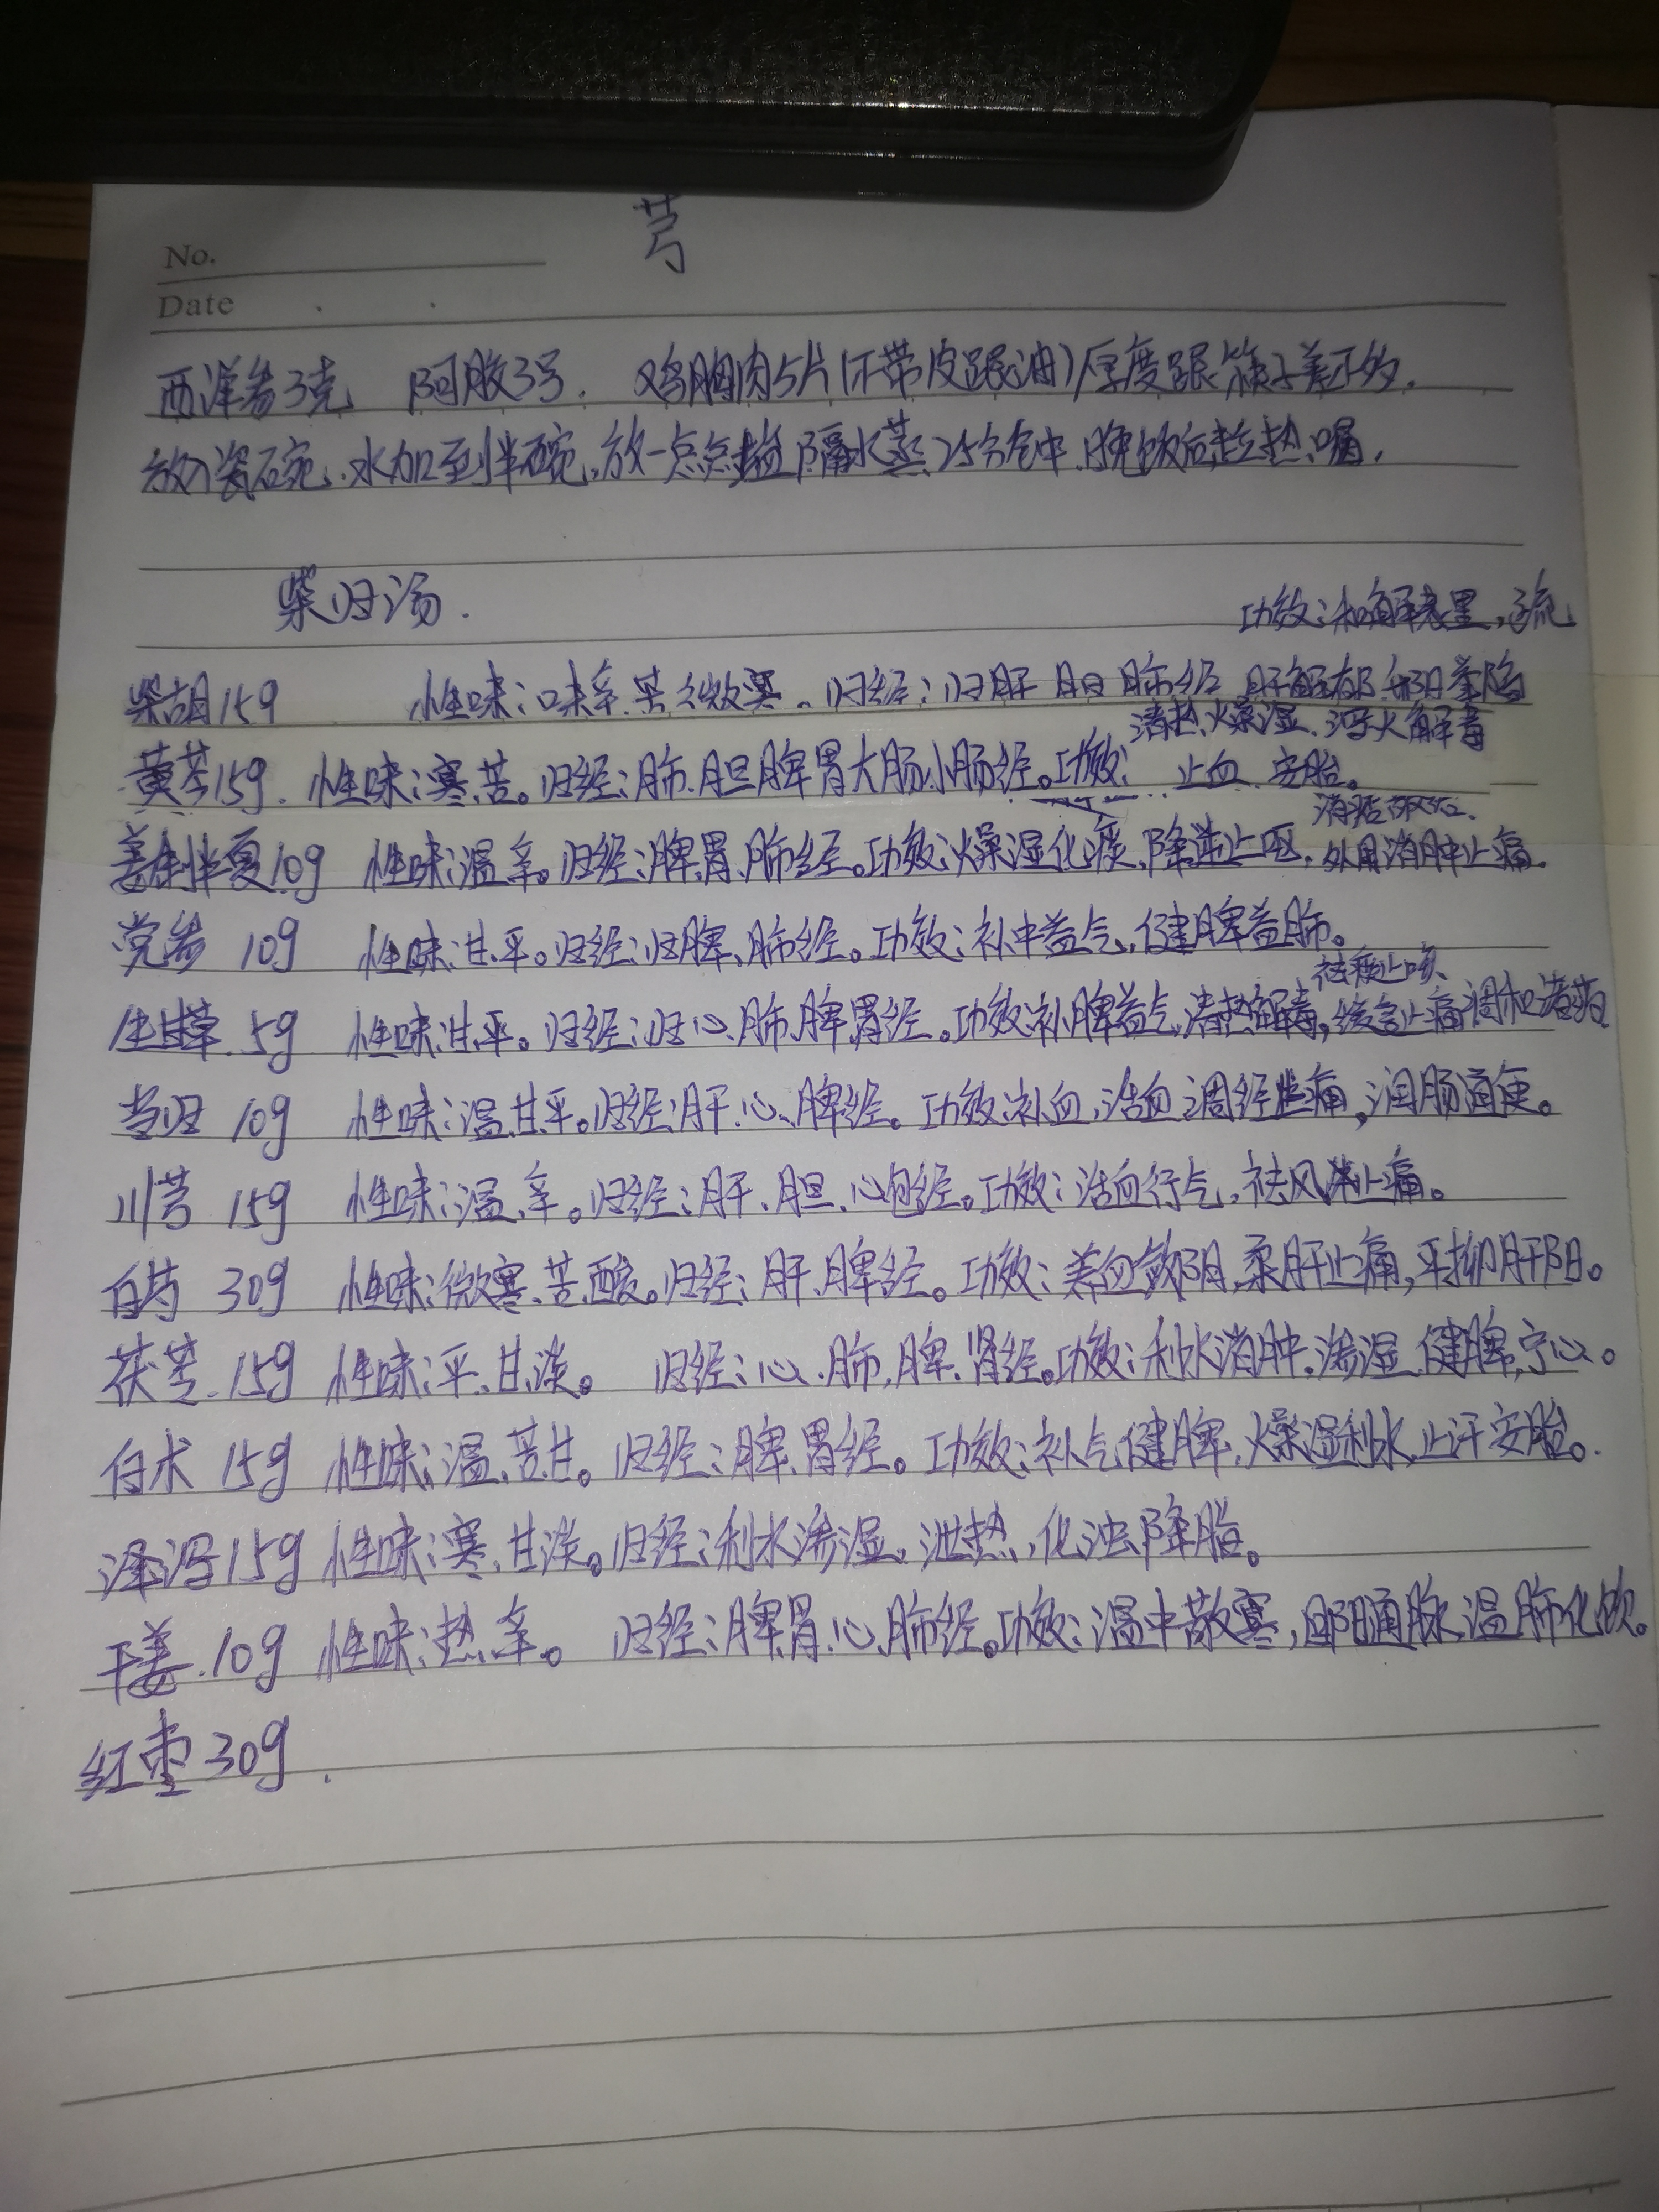 芎
No.
Date
西洋参3克 阿胶3号. 鸡胸肉5片(不带皮跟油)厚度跟筷子差不多.
放入瓷碗.水加至半碗,放一点点盐隔水蒸25分钟.晚饭后趁热喝.
柴归汤.
功效:和解表里,疏
柴胡15g 性味:味辛.苦.微寒。归经:归肝 胆 肺经 肝解郁 升阳举陷
清热、燥湿.泻火解毒
黄芩15g. 性味:寒.苦。归经:肺.胆脾胃大肠小肠经。功效: 止血 安胎。
消痞散结.
姜制半夏10g 性味:温 辛。归经:脾.胃.肺经。功效:燥湿化痰.降逆止呕.外用消肿止痛.
党参 10g 性味:甘.平。归经:归脾、肺经。功效:补中益气,健脾益肺。
祛痰止咳、
生甘草.5g 性味:甘.平。归经:归心.肺.脾胃经。功效:补脾益气,清热解毒,缓急止痛调和诸药
当归 10g 性味:温.甘.平。归经:肝.心、脾经。功效:补血,活血 调经止痛,润肠通便。
川芎 15g 性味:温、辛。归经:肝、胆、心包经。功效:活血行气,祛风止痛。
白芍 30g 性味:微寒.苦.酸。归经:肝.脾经。功效:养血敛阴,柔肝止痛,平抑肝阳。
茯苓.15g 性味:平.甘.淡。 归经:心.肺,脾.肾经。功效:利水消肿.渗湿.健脾,宁心。
白术 15g 性味:温.苦.甘。归经:脾.胃经。功效:补气健脾,燥湿利水,止汗安胎。
泽泻15g 性味:寒.甘.淡。归经:利水渗湿,泄热,化浊降脂。
干姜.10g 性味:热.辛。 归经:脾.胃.心.肺经。功效:温中散寒,回阳通脉,温肺化饮。
红枣30g.